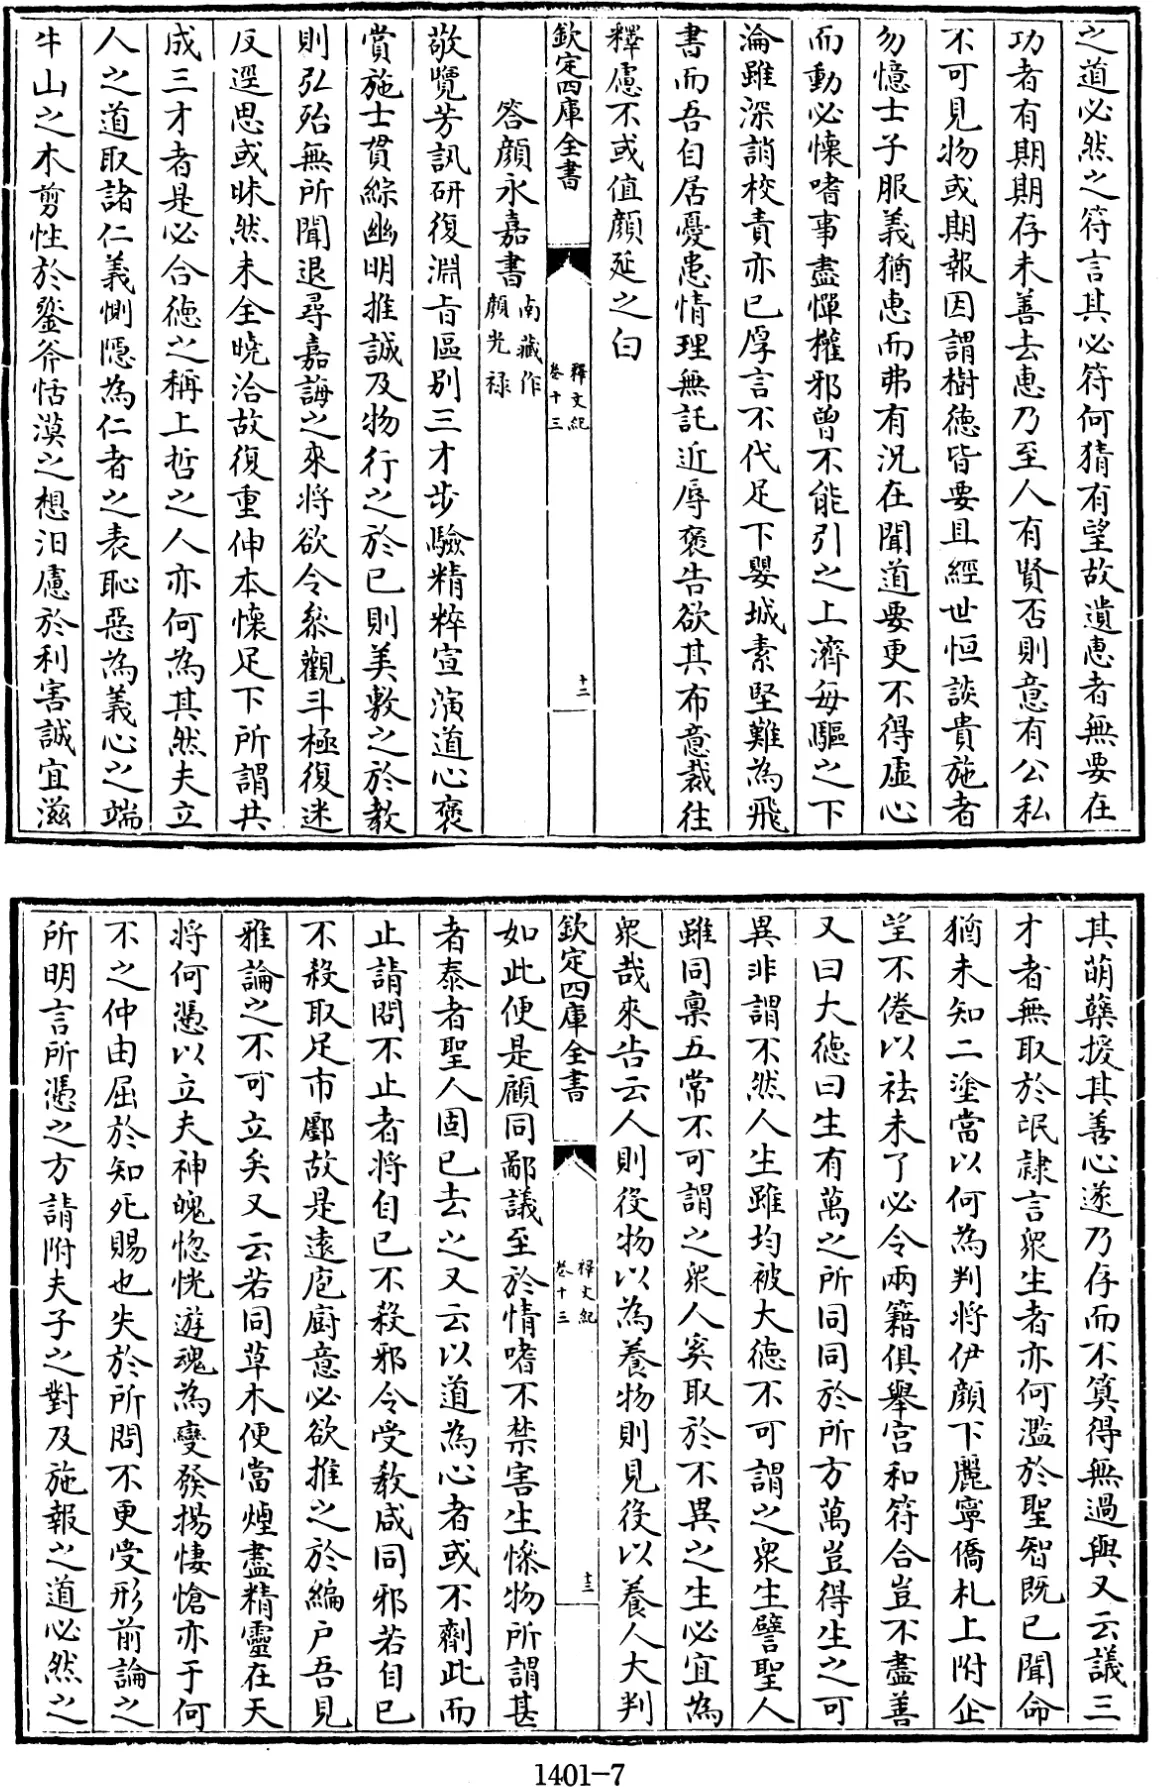 之道必然之符言其必符何猜有望故遺惠者無要在
功者有期期存未善去惠乃至人有賢否則意有公私
不可見物或期報因謂樹德皆要且經世恒談貴施者
勿憶士子服義猶惠而弗有況在聞道要更不得虛心
而動必懷嗜事盡憚權邪曾不能引之上濟每驅之下
淪雖深誚校責亦已厚言不代足下嬰城素堅難為飛
書而吾自居憂患情理無託近辱褒告欲其布意裁往
釋慮不或值顏延之白
欽定四庫全書
釋文紀
卷十三
十二
答顏永嘉書
南藏作
顏光祿
敬覽芳訊研復淵旨區別三才步驗精粹宣演道心褒
賞施士貫綜幽明推誠及物行之於己則美敷之於教
則弘殆無所聞退尋嘉誨之來將欲令參觀斗極復迷
反逕思或昧然未全曉洽故復重伸本懷足下所謂共
成三才者是必合德之稱上哲之人亦何為其然夫立
人之道取諸仁義惻隱為仁者之表恥惡為義心之端
牛山之木剪性於鏧斧恬漠之想汨慮於利害誠宜滋
其萌蘖援其善心遂乃存而不筭得無過與又云議三
才者無取於氓隷言眾生者亦何濫於聖智既已聞命
猶未知二塗當以何為判將伊顏下麗寧僑札上附企
望不倦以袪未了必令兩籍俱舉宮和符合豈不盡善
又曰大德曰生有萬之所同同於所方萬豈得生之可
異非謂不然人生雖均被大德不可謂之眾生譬聖人
雖同稟五常不可謂之眾人奚取於不異之生必宜為
眾哉來告云人則役物以為養物則見役以養人大判
欽定四庫全書
釋文紀
卷十三
十三
如此便是顧同鄙議至於情嗜不禁害生慘物所謂甚
者泰者聖人固已去之又云以道為心者或不劑此而
止請問不止者將自己不殺邪令受教咸同邪若自己
不殺取足市鄽故是遠庖廚意必欲推之於編戶吾見
雅論之不可立矣又云若同草木便當煙盡精靈在天
將何憑以立夫神魄惚恍遊魂為變發揚悽愴亦于何
不之仲由屈於知死賜也失於所問不更受形前論之
所明言所憑之方請附夫子之對及施報之道必然之
1401-7